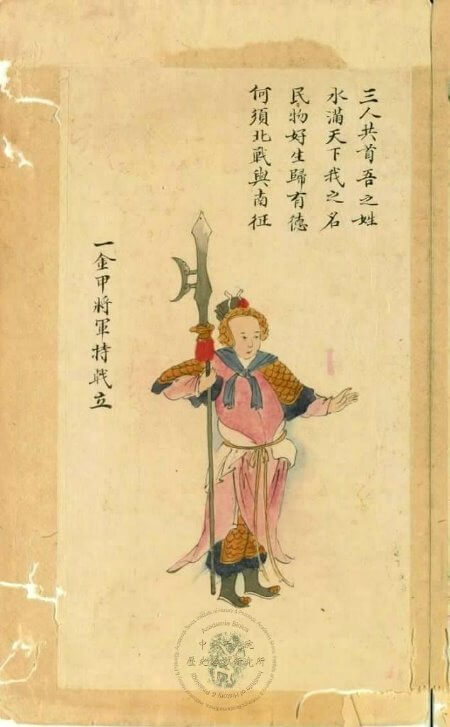 三人共首吾之姓
水滿天下我之名
民物好生歸有德
何須北戰與南征
一金甲將軍持戟立
Academia Sinica
中央研究院
歷史語言研究所